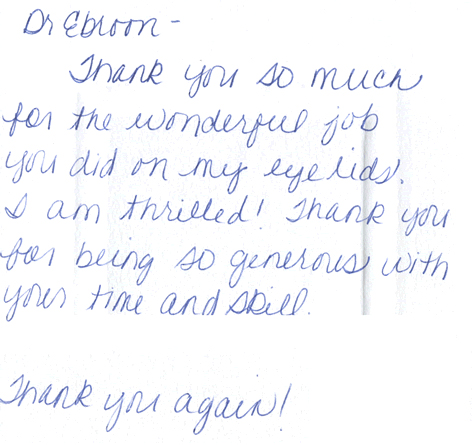 Dr Ebroon -
Thank you so much
for the wonderful job
you did on my eyelids.
I am thrilled! Thank you
for being so generous with
your time and skill.
Thank you again!